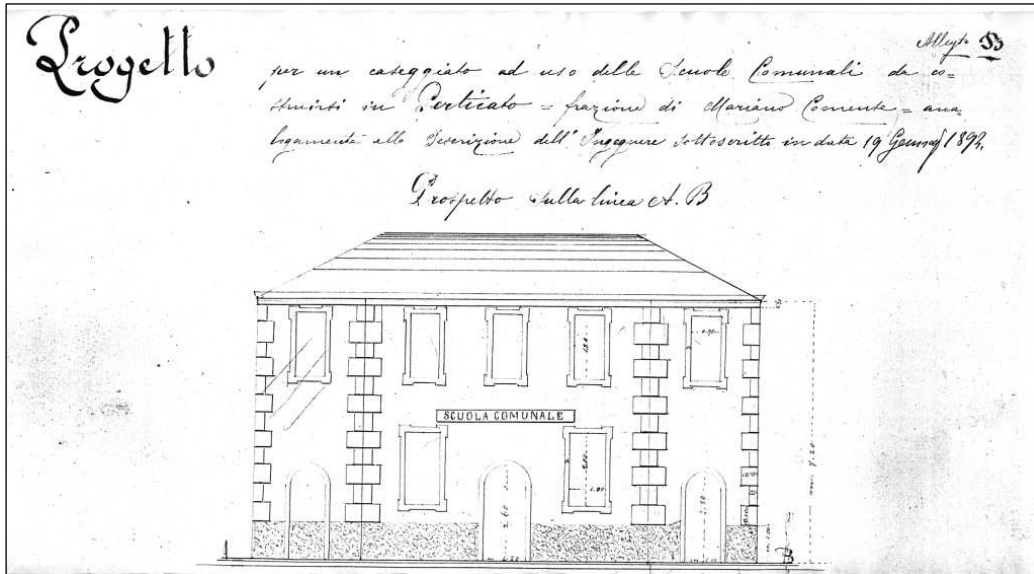 Progetto
Allegto B
per un caseggiato ad uso delle Scuole Comunali da co=
struirsi in Perticato = frazione di Mariano Comense = ana
logamente alla Descrizione dell' Ingegnere sottoscritto in data 19 Gennajo 1892.
Prospetto sulla linea A. B
SCUOLA COMUNALE
0.90
1.80
2.00
1.00
2.60
2.50
m. 9.20
B